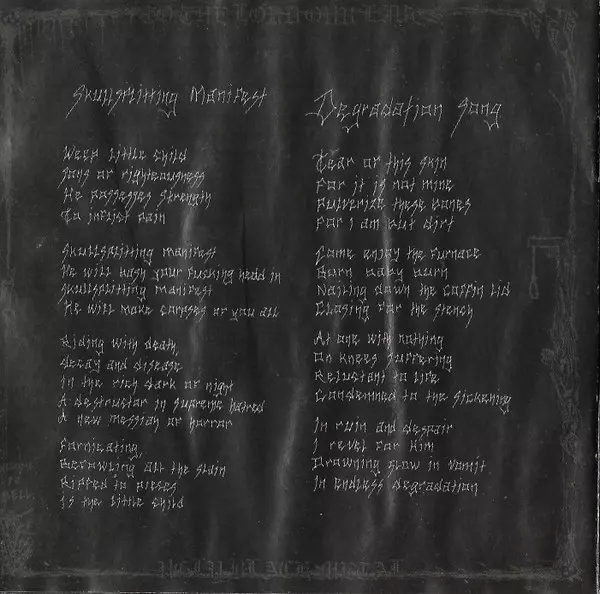 TO THE LORD OUR LIVES
Skullsplitting Manifest
Weep little child
Sons of righteousness
He possesses strength
To inflist pain
Skullsplitting manifest
He will bash your fucking head in
Skullsplitting manifest
He will make corpses of you all
Riding with death,
decay and disease
In the rich dark of night
A destructor in supreme hatred
A new messiah of horror
Fornicating,
Defowling all the slain
Ripped to pieses
Is the little child
Degradation Song
Tear of this skin
For it is not mine
Pulverize these bones
For I am but dirt
Come enjoy the furnace
Burn baby burn
Nailing down the coffin lid
Closing for the stench
At one with nothing
On knees suffering
Reluctant to life
Condemned to the sickening
In ruin and despair
I revel for Him
Drowning slow in vomit
In endless degradation
METAL